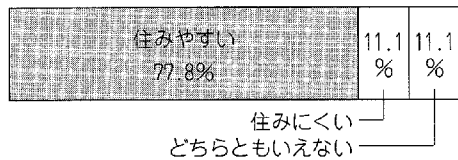 住みやすい
77.8%
11.1
%
11.1
%
住みにくい
どちらともいえない